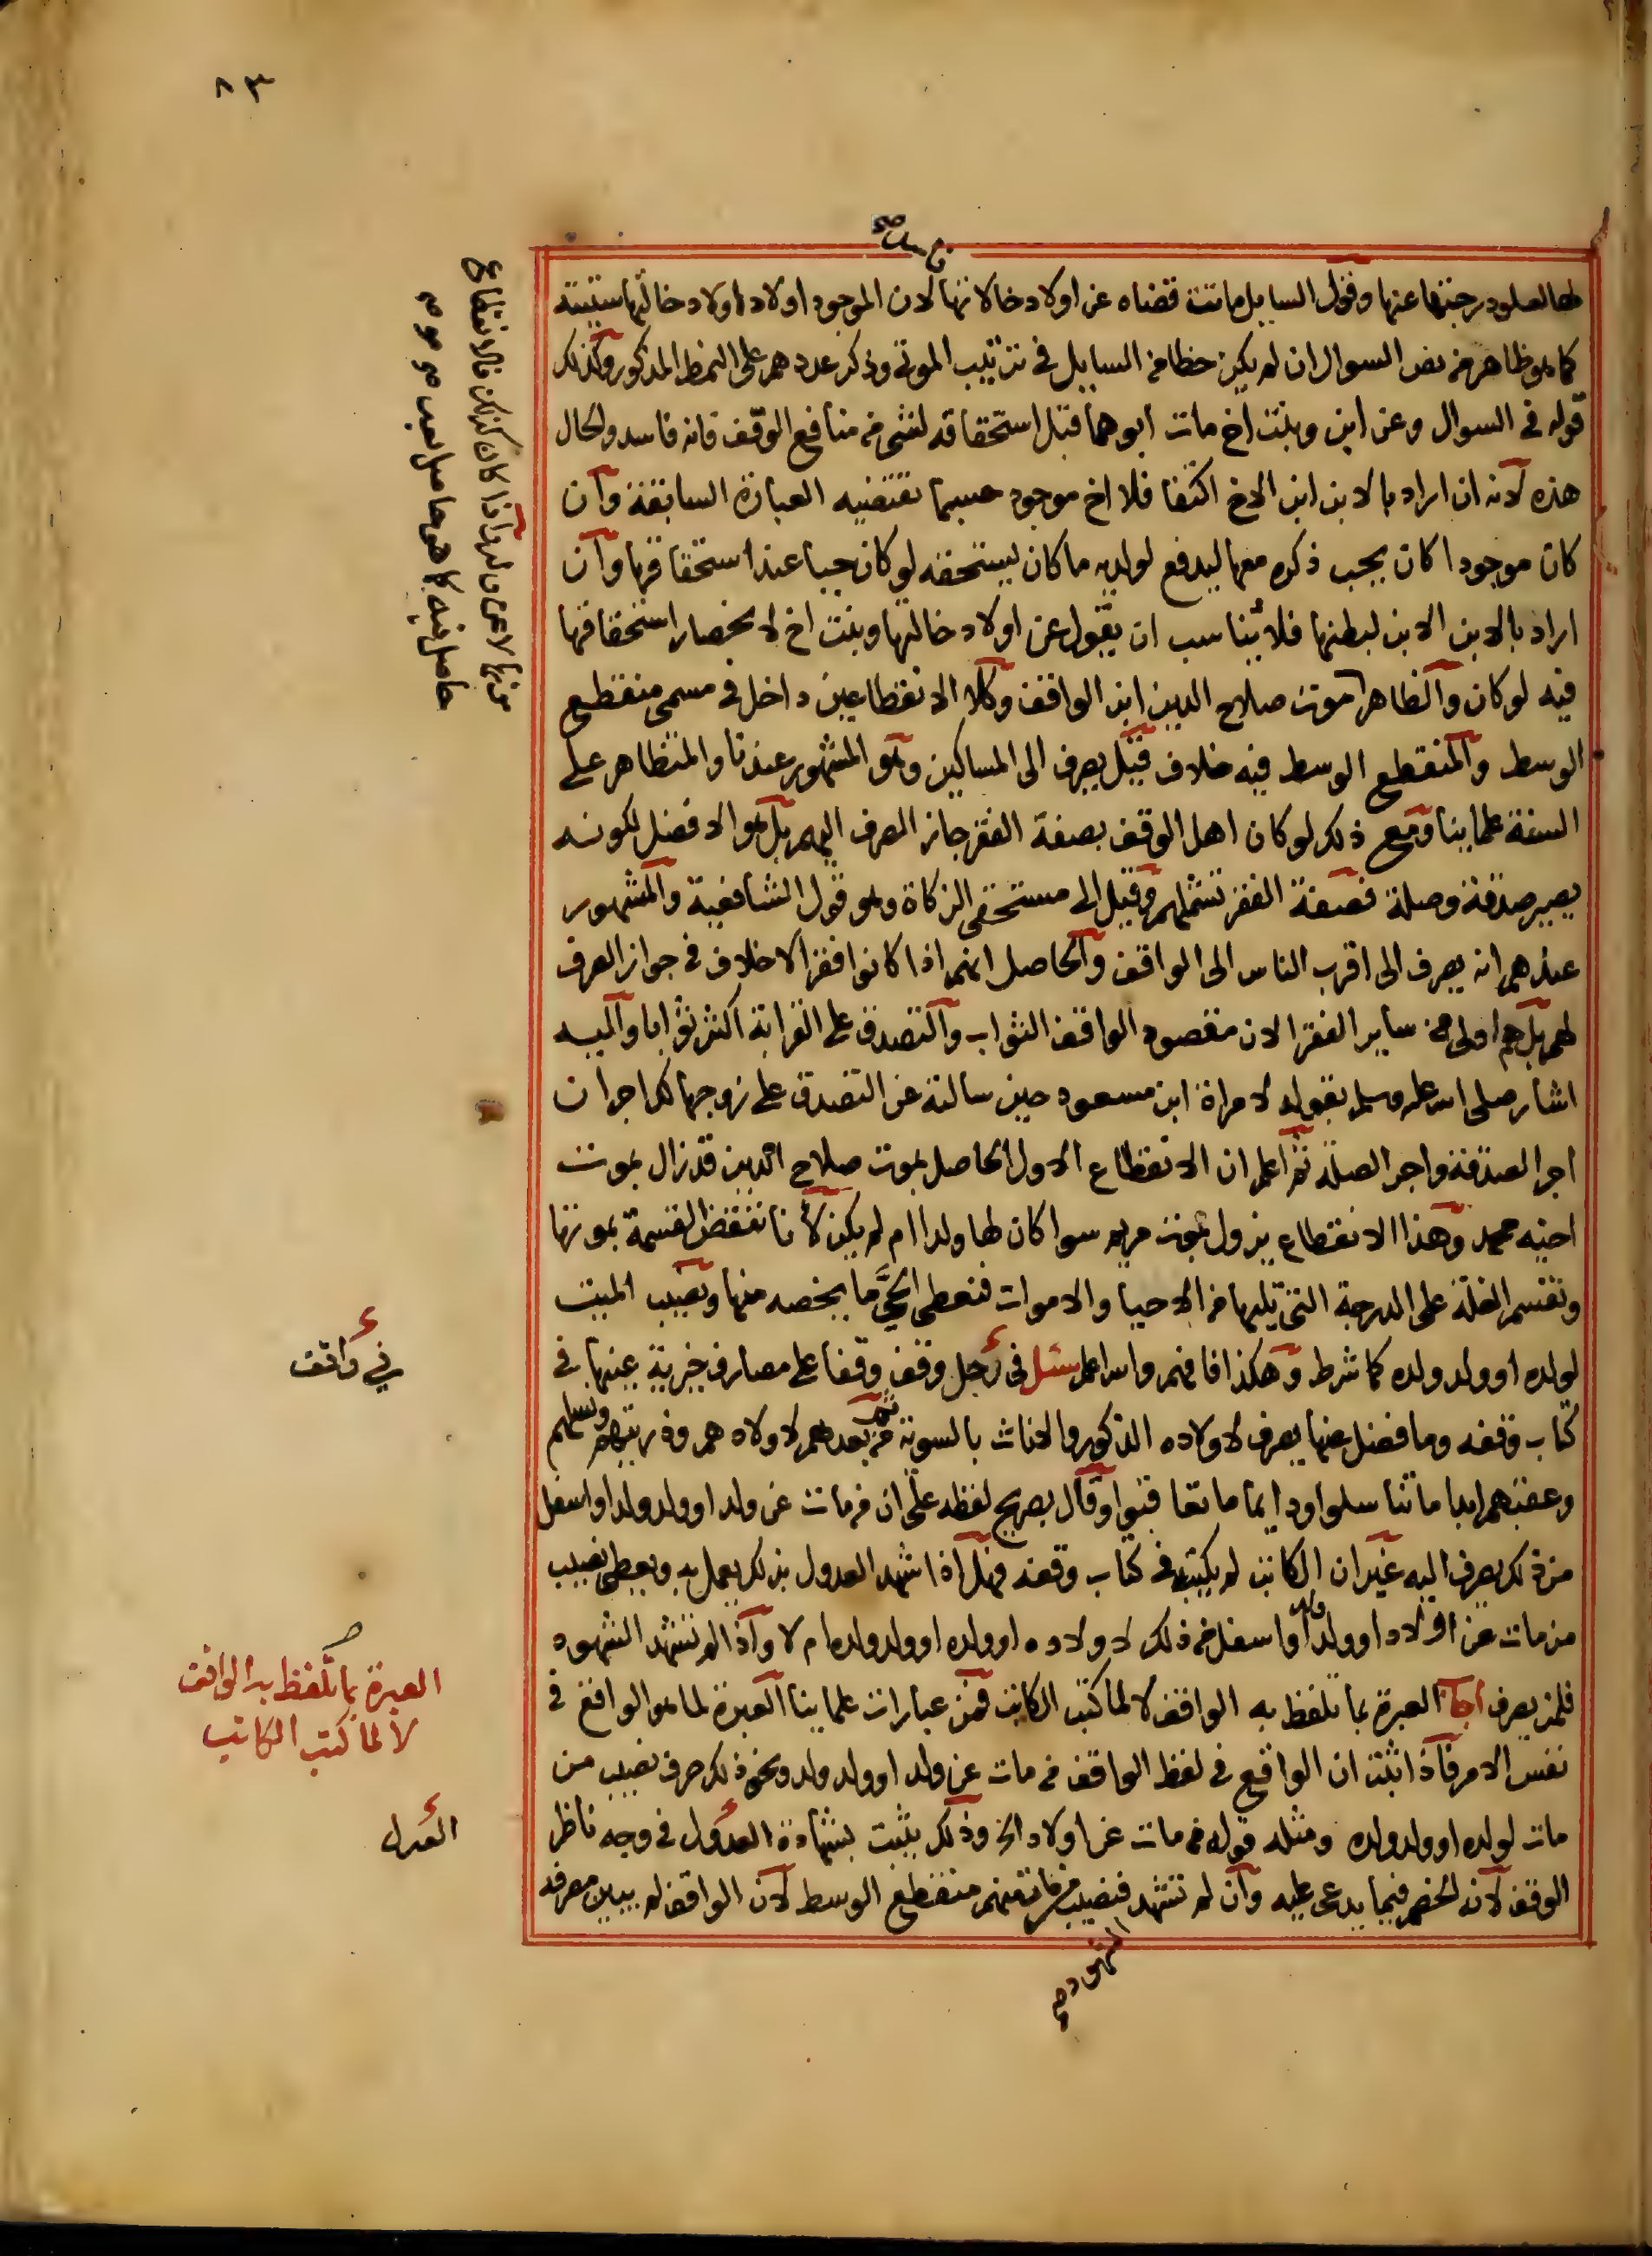 ٨٣
لها لعلو درجتها عنها وقول السايل ماتت قضاه عن اولاد خالاتها لان الموجود اولاد اولاد خالتها ستيتة
كما هو ظاهر من نص السوال ان لم يكن خطا من السايل في ترتيب الموتى وذكر عددهم على النمط المذكور وكذلك
قوله في السوال وعن ابن وبنت اخ مات ابوهما قبل استحقاقه لشي من منافع الوقف فانه فاسد والحال
هذه لانه ان اراد بالابن ابن الاخ اكتفا فلا اخ موجود حسبما تقتضيه العبارة السابقة وان
كان موجودا كان يجب ذكره معها ليدفع لولديه ما كان ليستحقه لو كان حيا عند استحقاقها وان
اراد بالابن الابن لبطنها فلا يناسب ان يقول عن اولاد خالتها وبنت اخ لانحصار استحقاقها
فيه لو كان والظاهر موت صلاح الدين ابن الواقف وكلا الانقطاعين داخل في مسمى منقطع
الوسط والمنقطع الوسط فيه خلاف قيل يصرف الى المساكين وهو المشهور عندنا والمتظاهر على
السنة علماينا ومع ذلك لو كان اهل الوقف بصفة الفقر جاز الصرف اليهم بل هو الافضل لكونه
يصير صدقة وصلة فصفة الفقر تشملهم وقيل الى مستحقي الزكاة وهو قول الشافعية والمشهور
عندهم انه يصرف الى اقرب الناس الى الواقف والحاصل انهم اذا كانوا فقرا لا خلاف في جواز الصرف
لهم بل هم اولى من ساير الفقرا لان مقصود الواقف الثواب والتصدق على القرابة اكثر ثوابا واليه
اشار صلى الله عليه وسلم بقوله لامراة ابن مسعود حين سالته عن التصدق على زوجها لك اجران
اجر الصدقة واجر الصلة ثم اعلم ان الانقطاع الاول الحاصل بموت صلاح الدين قد زال بموت
اخيه محمد وهذا الانقطاع يزول بموت مريم سوا كان لها ولد ام لم يكن لانا ننقض القسمة بموتها
ونقسم الغلة على الدرجة التي تليها من الاحيا والاموات فنعطي الحي ما يخصه منها ونصيب الميت
لولده او ولد ولده كما شرط وهكذا فافهم والله اعلم سئل في رجل وقف وقفا على مصارف خيرية عينها في
كتاب وقفه وما فضل عنها يصرف لاولاده الذكور والاناث بالسوية ثم من بعدهم لاولادهم وذريتهم ونسلهم
وعقبهم ابدا ما تناسلوا ودايما ما تعاقبوا وقال بصريح لفظه على ان من مات عن ولد او ولد ولد او اسفل
من ذلك يصرف اليه غير ان الكاتب لم يكتبه في كتاب وقفه فهل اذا شهد العدول بذلك يعمل به ويعطى نصيب
من مات عن اولاد او ولد ولد او اسفل من ذلك لاولاده او ولده او ولد ولده ام لا واذا لم تشهد الشهود
فلمن يصرف اجاب العبرة بما تلفظ به الواقف لا لما كتب الكاتب فمن عبارات علماينا العبرة لما هو الواقع في
نفس الامر فاذا ثبت ان الواقع في لفظ الواقف من مات عن ولد او ولد ولد ونحو ذلك صرف نصيب من
مات لولده او ولد ولده ومثله قوله من مات عن اولاد الخ وذلك يثبت بشهادة العدول في وجه ناظر
الوقف لانه الخصم فيما يدعى عليه وان لم تشهد فنصيب من مات منهم منقطع الوسط لان الواقف لم يبين مصرفه
الشهود صح
في واقف
العبرة بما تلفظ به الواقف
لا لما كتب الكاتب
العدل